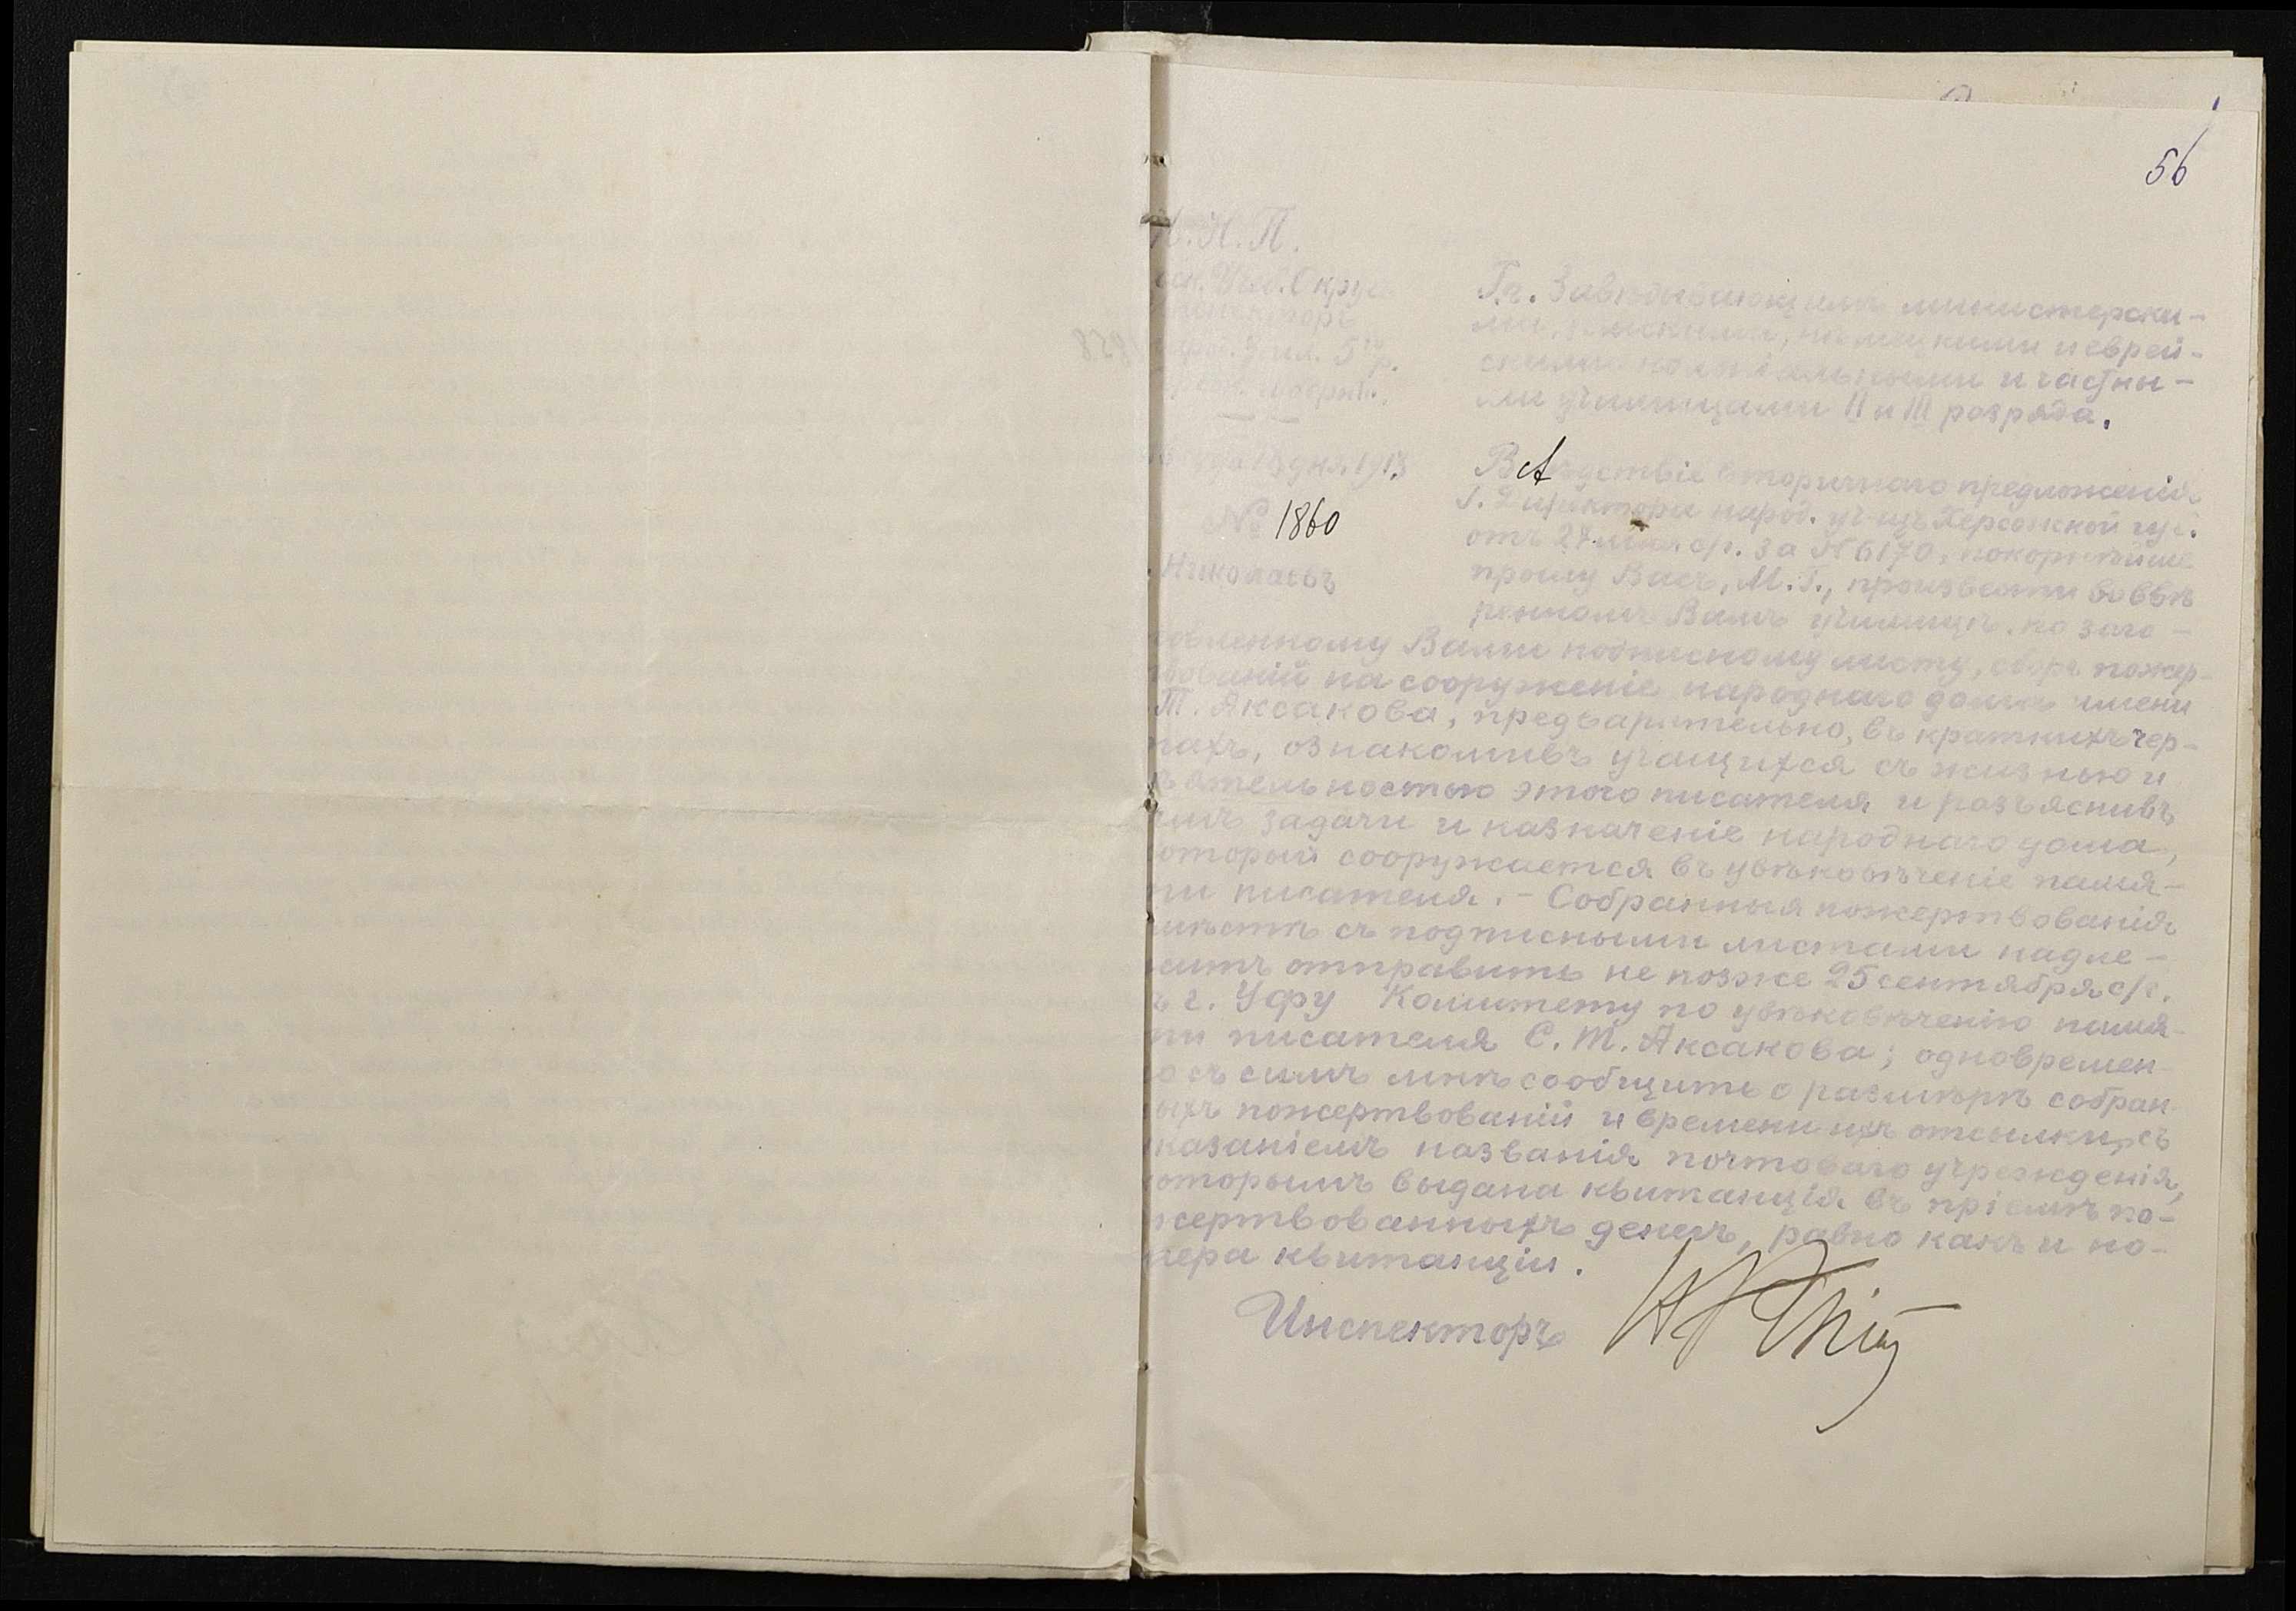 56
Н. П.
Учеб. Округ
5 р.
№ 1860
Николаевъ
Гг. Завѣдывающимъ министерски-
ми, нѣмецкими и еврей-
скими и частны-
ми училищами II и III разряда.
Вслѣдствіе вторичнаго предложенія
Г. Директора народ. уч-щъ Херсонской губ.
отъ 27 с/г. за № 6170, покорнѣйше
прошу Васъ, М. Г., произвести во ввѣ
ренномъ Вамъ училищѣ, по заго-
товленному Вами подписному листу, сборъ пожер-
твованій на сооруженіе народнаго дома имени
Т. Аксакова, предварительно, въ краткихъ чер-
тахъ, ознакомивъ учащихся съ жизнью и
ѣятельностью этого писателя и разъяснивъ
имъ задачи и назначеніе народнаго дома,
оторый сооружается въ увѣковѣченіе памя-
ти писателя. - Собранныя пожертвованія
мѣстѣ съ подписными листами надле-
житъ отправить не позже 25 сентября с/г.
ъ г. Уфу Комитету по увѣковѣченію памя-
ти писателя С. Т. Аксакова; одновремен-
о съ симъ мнѣ сообщить о размѣрѣ собран-
ыхъ пожертвованій и времени ихъ отсылки, съ
казаніемъ названія почтоваго учрежденія,
оторымъ выдана квитанція въ пріемѣ по-
жертвованныхъ денегъ, равно какъ и но-
мера квитанціи.
Инспекторъ